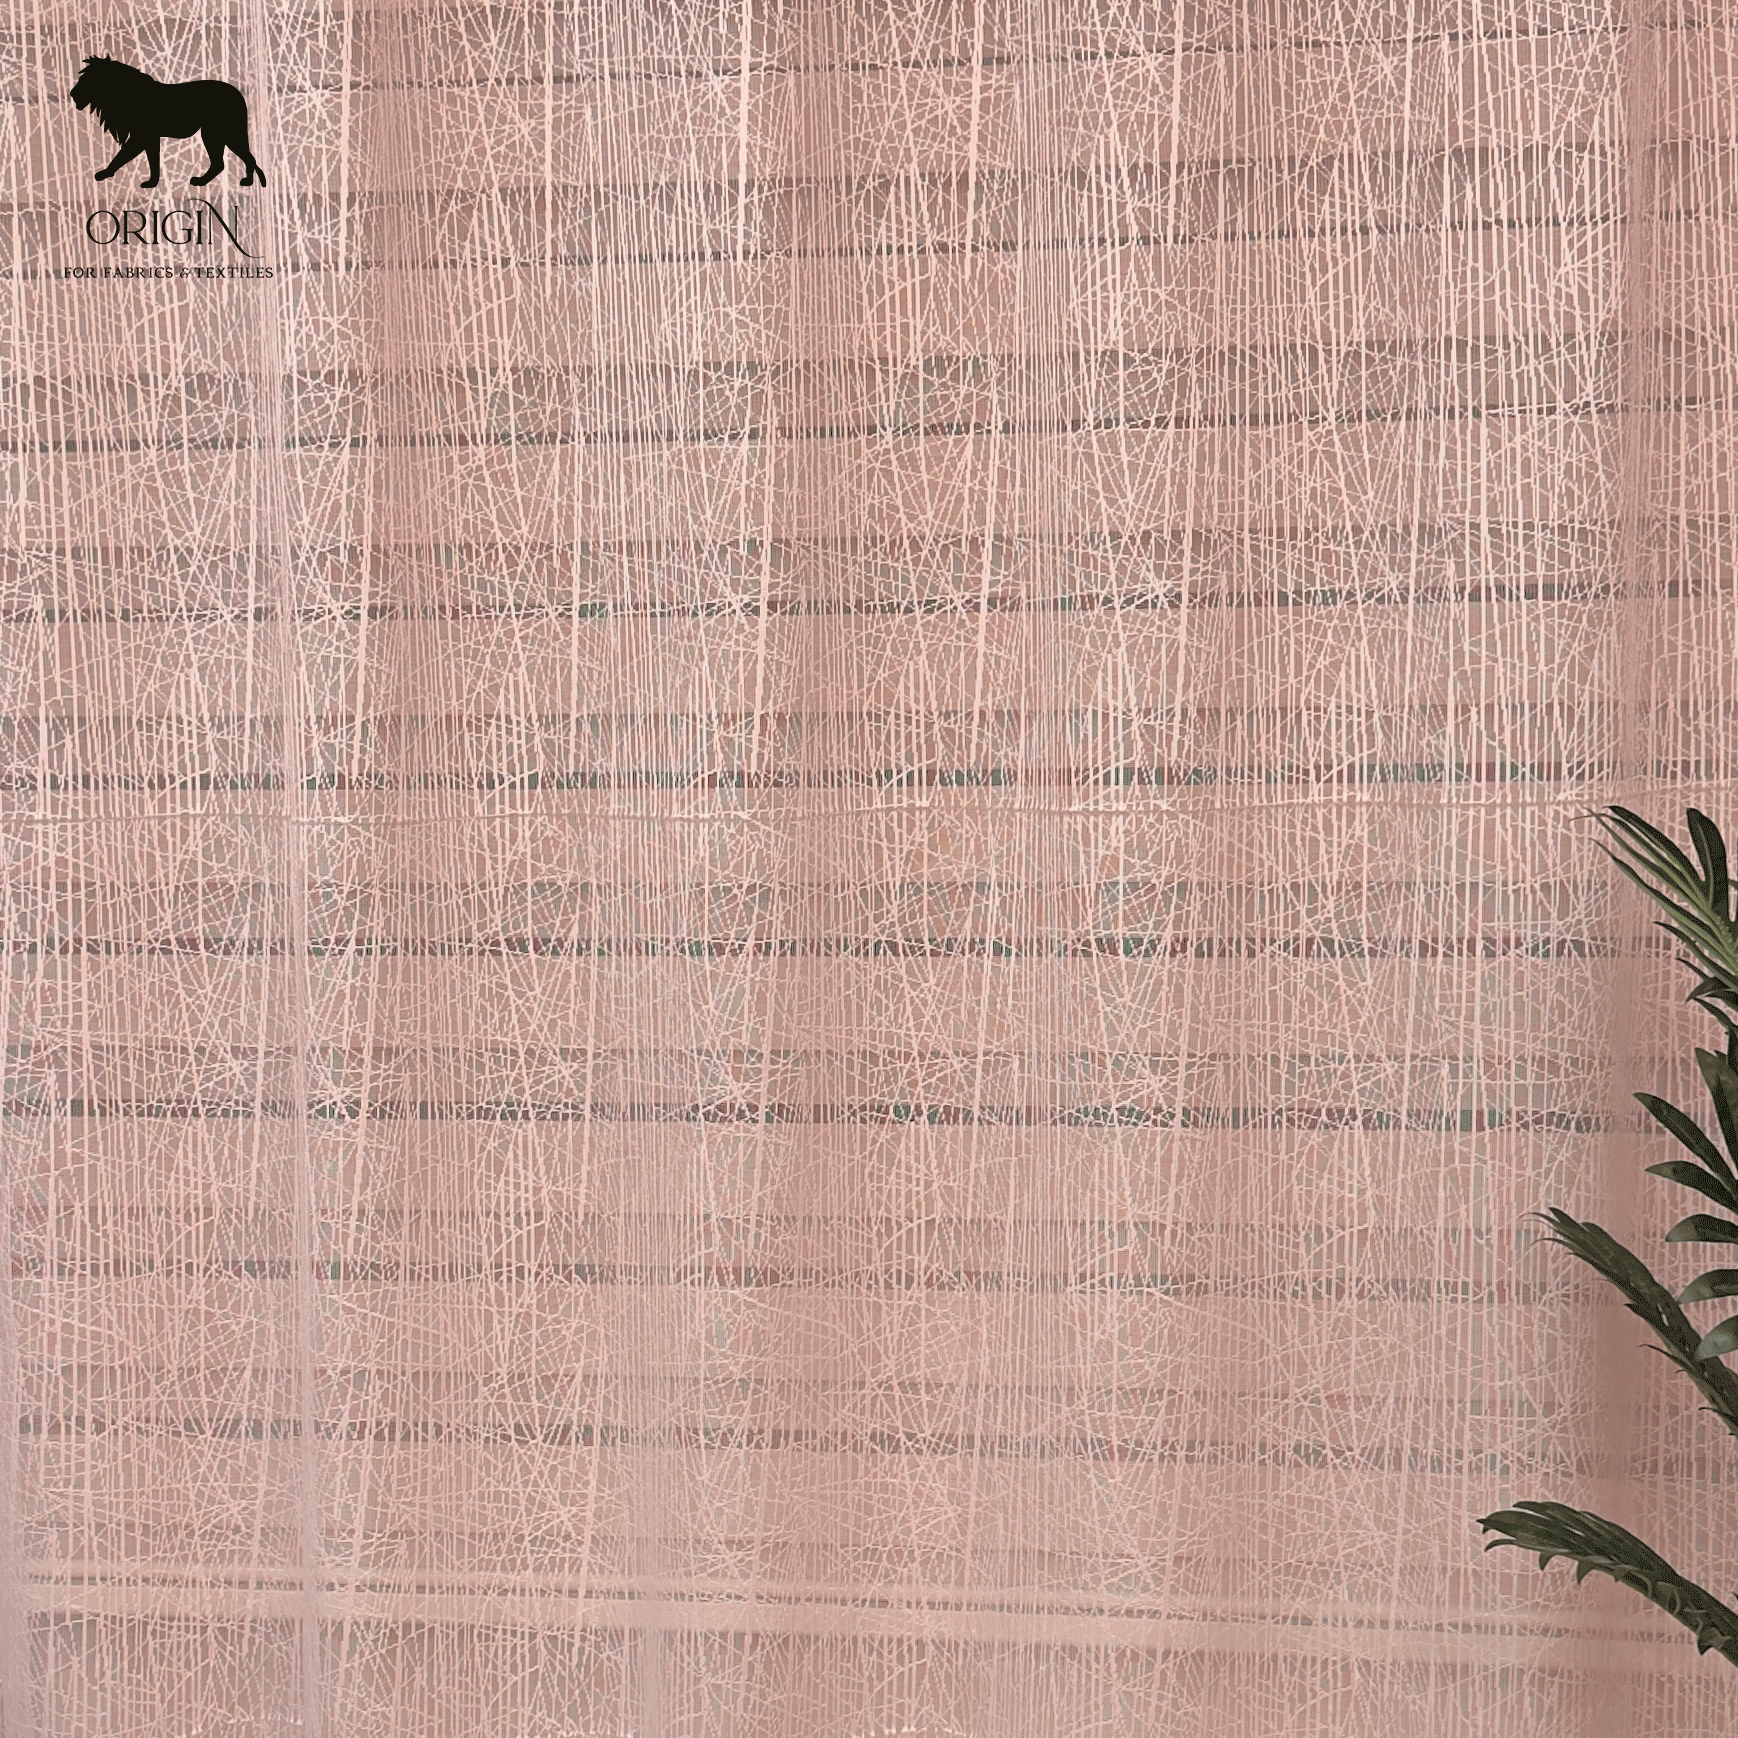 ORIGIN
FOR FABRICS & TEXTILES